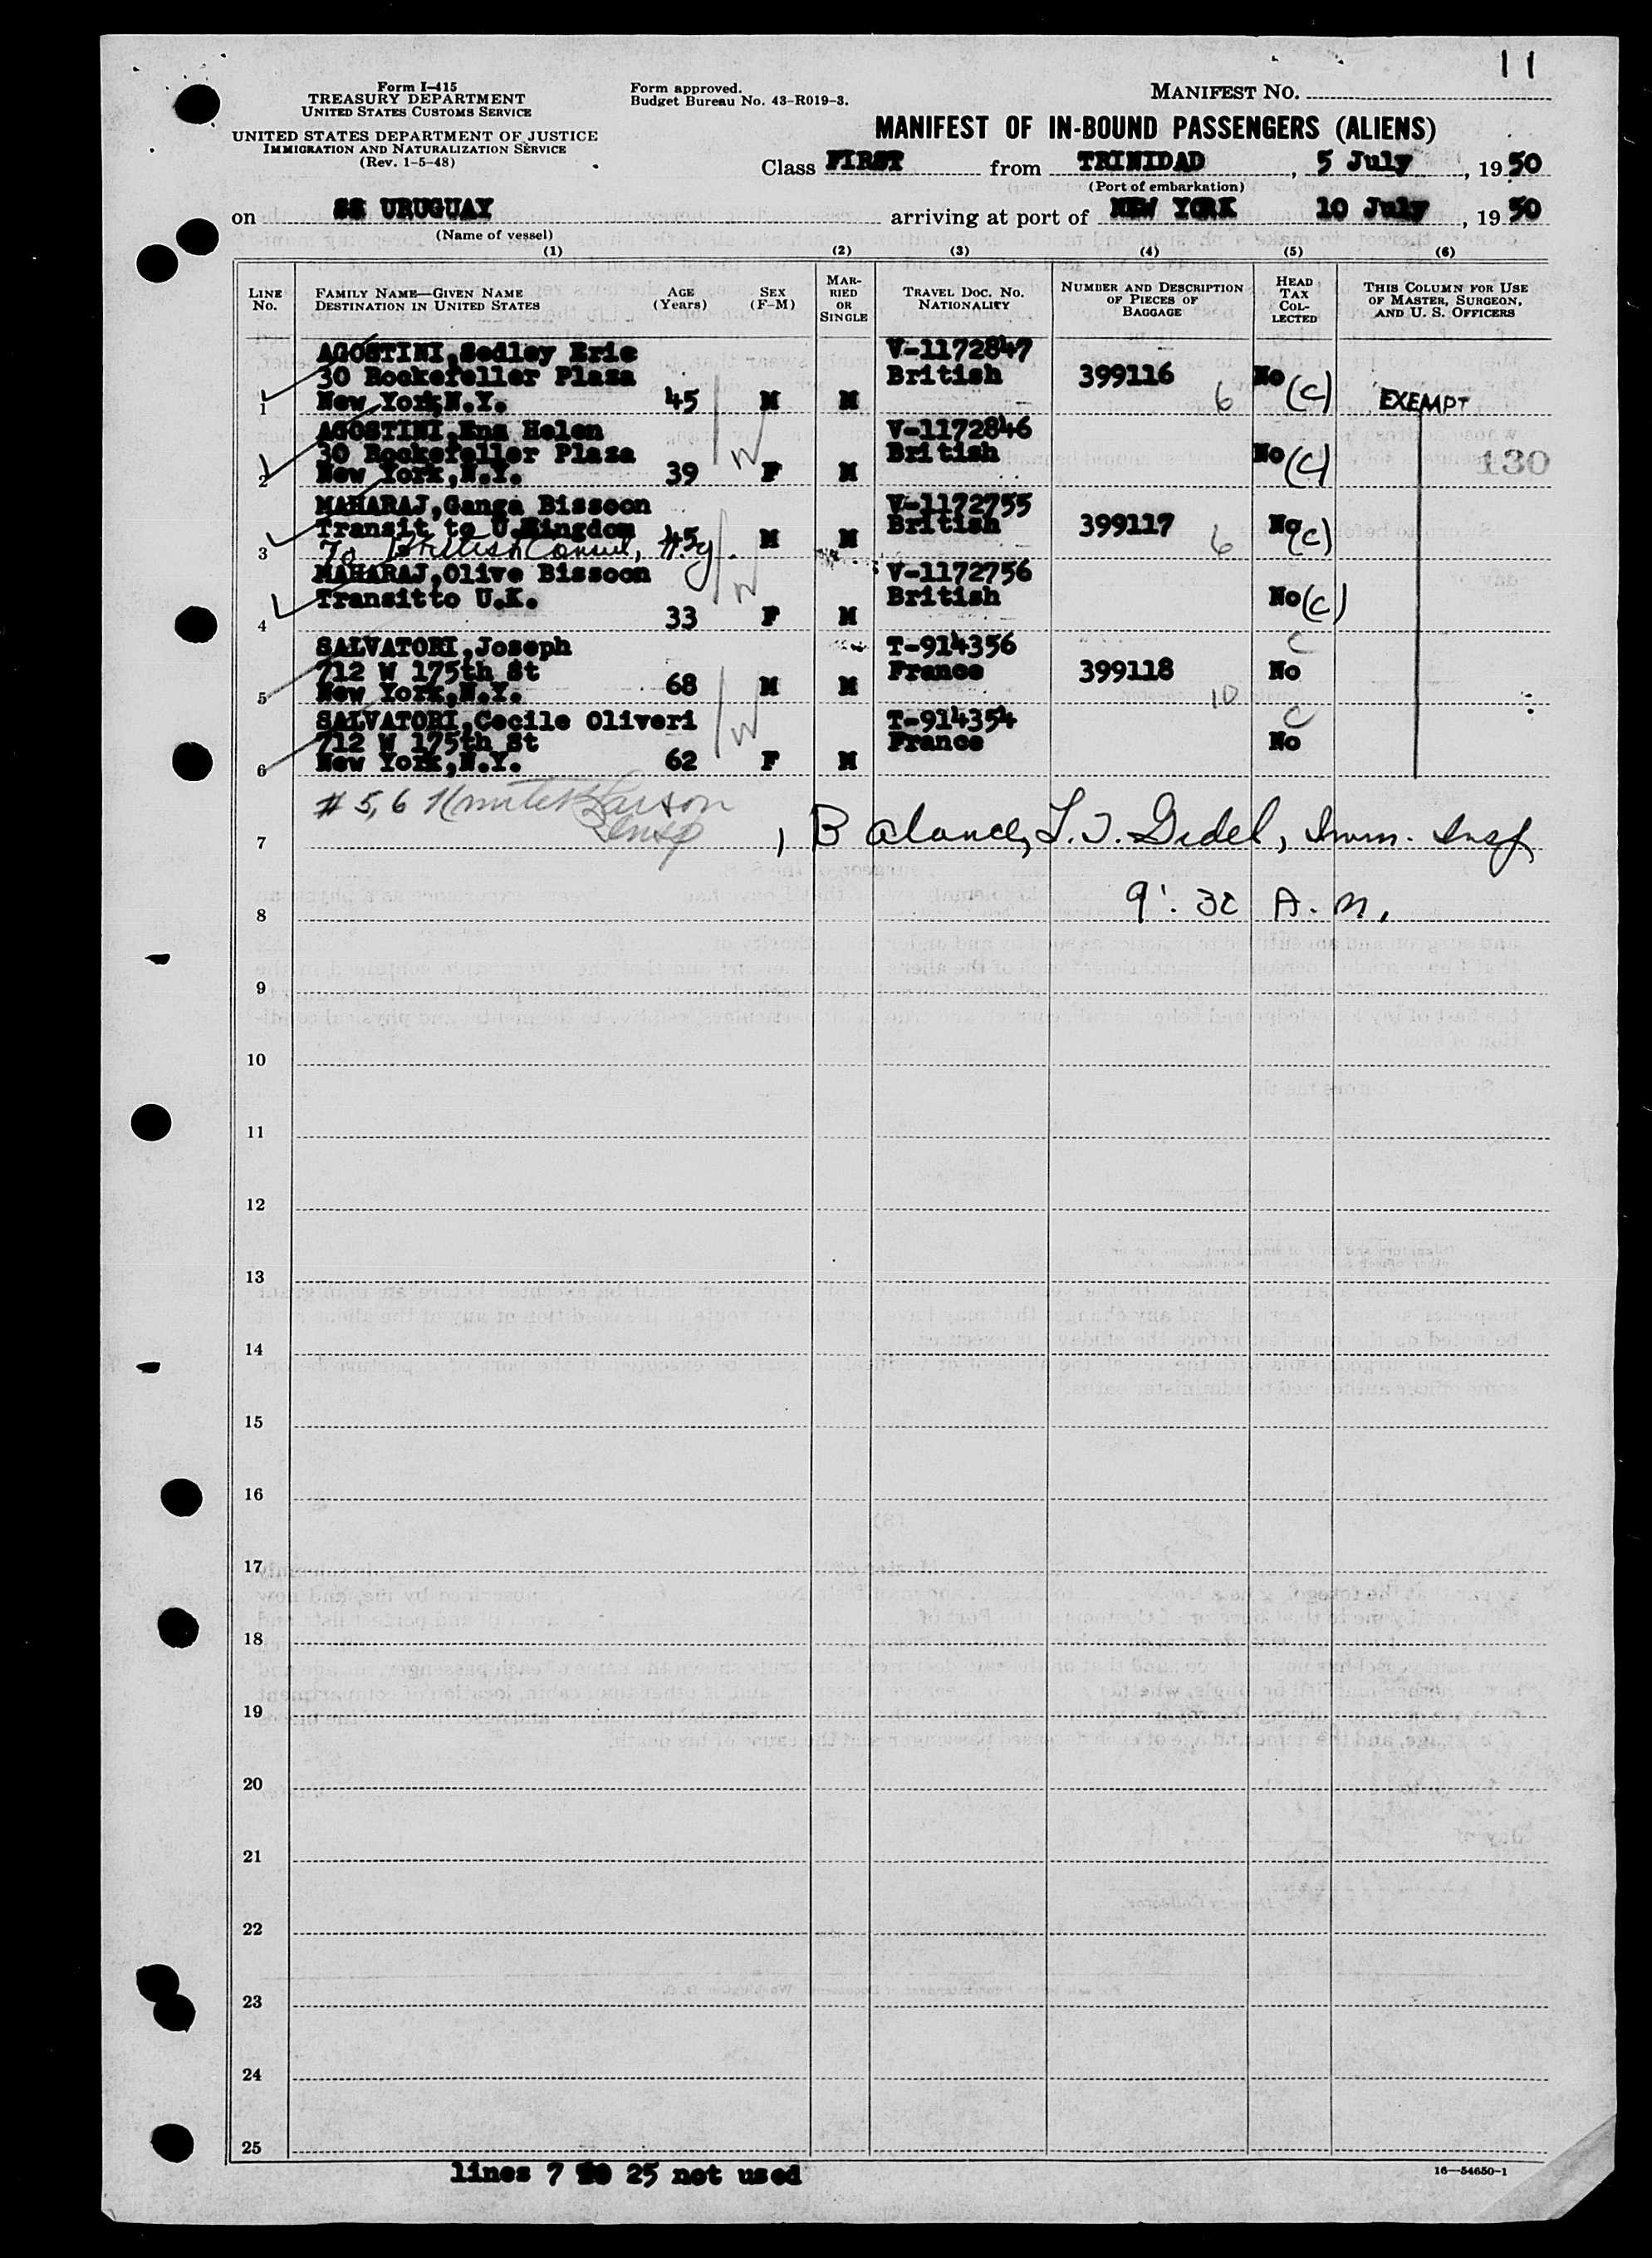 11
Form I-415
TREASURY DEPARTMENT
UNITED STATES CUSTOMS SERVICE
UNITED STATES DEPARTMENT OF JUSTICE
IMMIGRATION AND NATURALIZATION SERVICE
(Rev. 1-5-48)
Form approved.
Budget Bureau No. 43-R019-3.
MANIFEST NO.
MANIFEST OF IN-BOUND PASSENGERS (ALIENS)
Class FIRST from TRINIDAD, 5 July, 1950
(Port of embarkation)
on SS URUGUAY arriving at port of NEW YORK 10 July, 1950
(Name of vessel)
(1) (2) (3) (4) (5) (6)
LINE No.
FAMILY NAME—GIVEN NAME
DESTINATION IN UNITED STATES
AGE (Years)
SEX (F-M)
MARRIED OR SINGLE
TRAVEL DOC. NO.
NATIONALITY
NUMBER AND DESCRIPTION OF PIECES OF BAGGAGE
HEAD TAX COLLECTED
THIS COLUMN FOR USE OF MASTER, SURGEON, AND U. S. OFFICERS
AGOSTINI,Sedley Eric V-1172847
30 Rockefeller Plaza British 399116 No
1 New York,N.Y. 45 M M 6 (C) EXEMPT
AGOSTINI,Ena Helen V-1172846
30 Rockefeller Plaza British No (C) 130
2 New York,N.Y. 39 W F M
MAHARAJ,Ganga Bissoon V-1172755
Transit to U.Kingdom British 399117 No
3 To British Consul, N.Y. 45 M M 6 (C)
MAHARAJ,Olive Bissoon V-1172756
Transitto U.K. W British No (C)
4 33 F M
SALVATORI,Joseph T-914356 C
712 W 175th St France 399118 No
5 New York,N.Y. 68 M M 10
SALVATORI,Cecile Oliveri T-914354 C
712 W 175th St W France No
6 New York,N.Y. 62 F M
# 5,6 Larson
Insp
7 , Balance, Imm. Insp
9:30 A.M.
8
9
10
11
12
13
14
15
16
17
18
19
20
21
22
23
24
25
lines 7 to 25 not used
16—54650-1